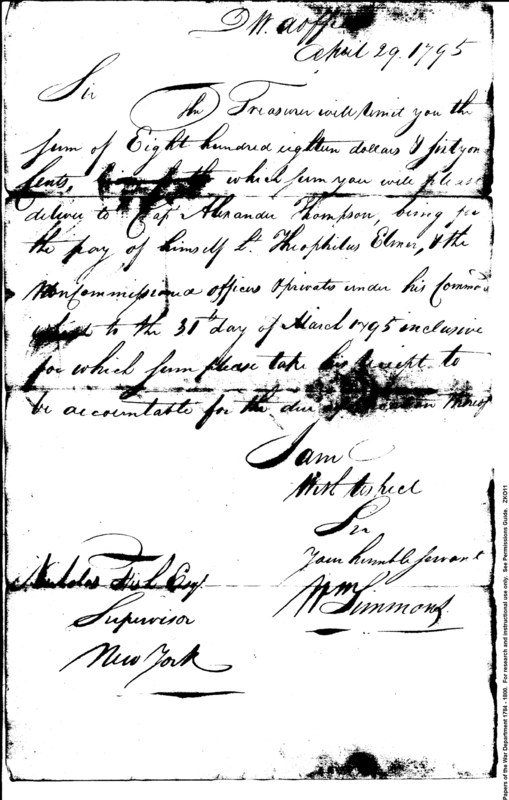 D W. Office
April 29. 1795
Sir
The Treasurer will remit you the
sum of Eight hundred eighteen dollars & sixty one
Cents, which sum you will please
deliver to Cap. Alexander Thompson, being for
the pay of himself Lt. Theophilus Elmer, & the
Noncommissioned officers & privates under his Command
to the 31st day of March 1795 inclusive
for which sum please take his receipt to
be accountable for the due thereof
I am
With respect
Sir
Your humble servant
Wm Simmons
Nicholas Fish Esqr.
Supervisor
New York
Papers of the War Department 1784 - 1800. For research and instructional use only. See Permissions Guide. ZKO11